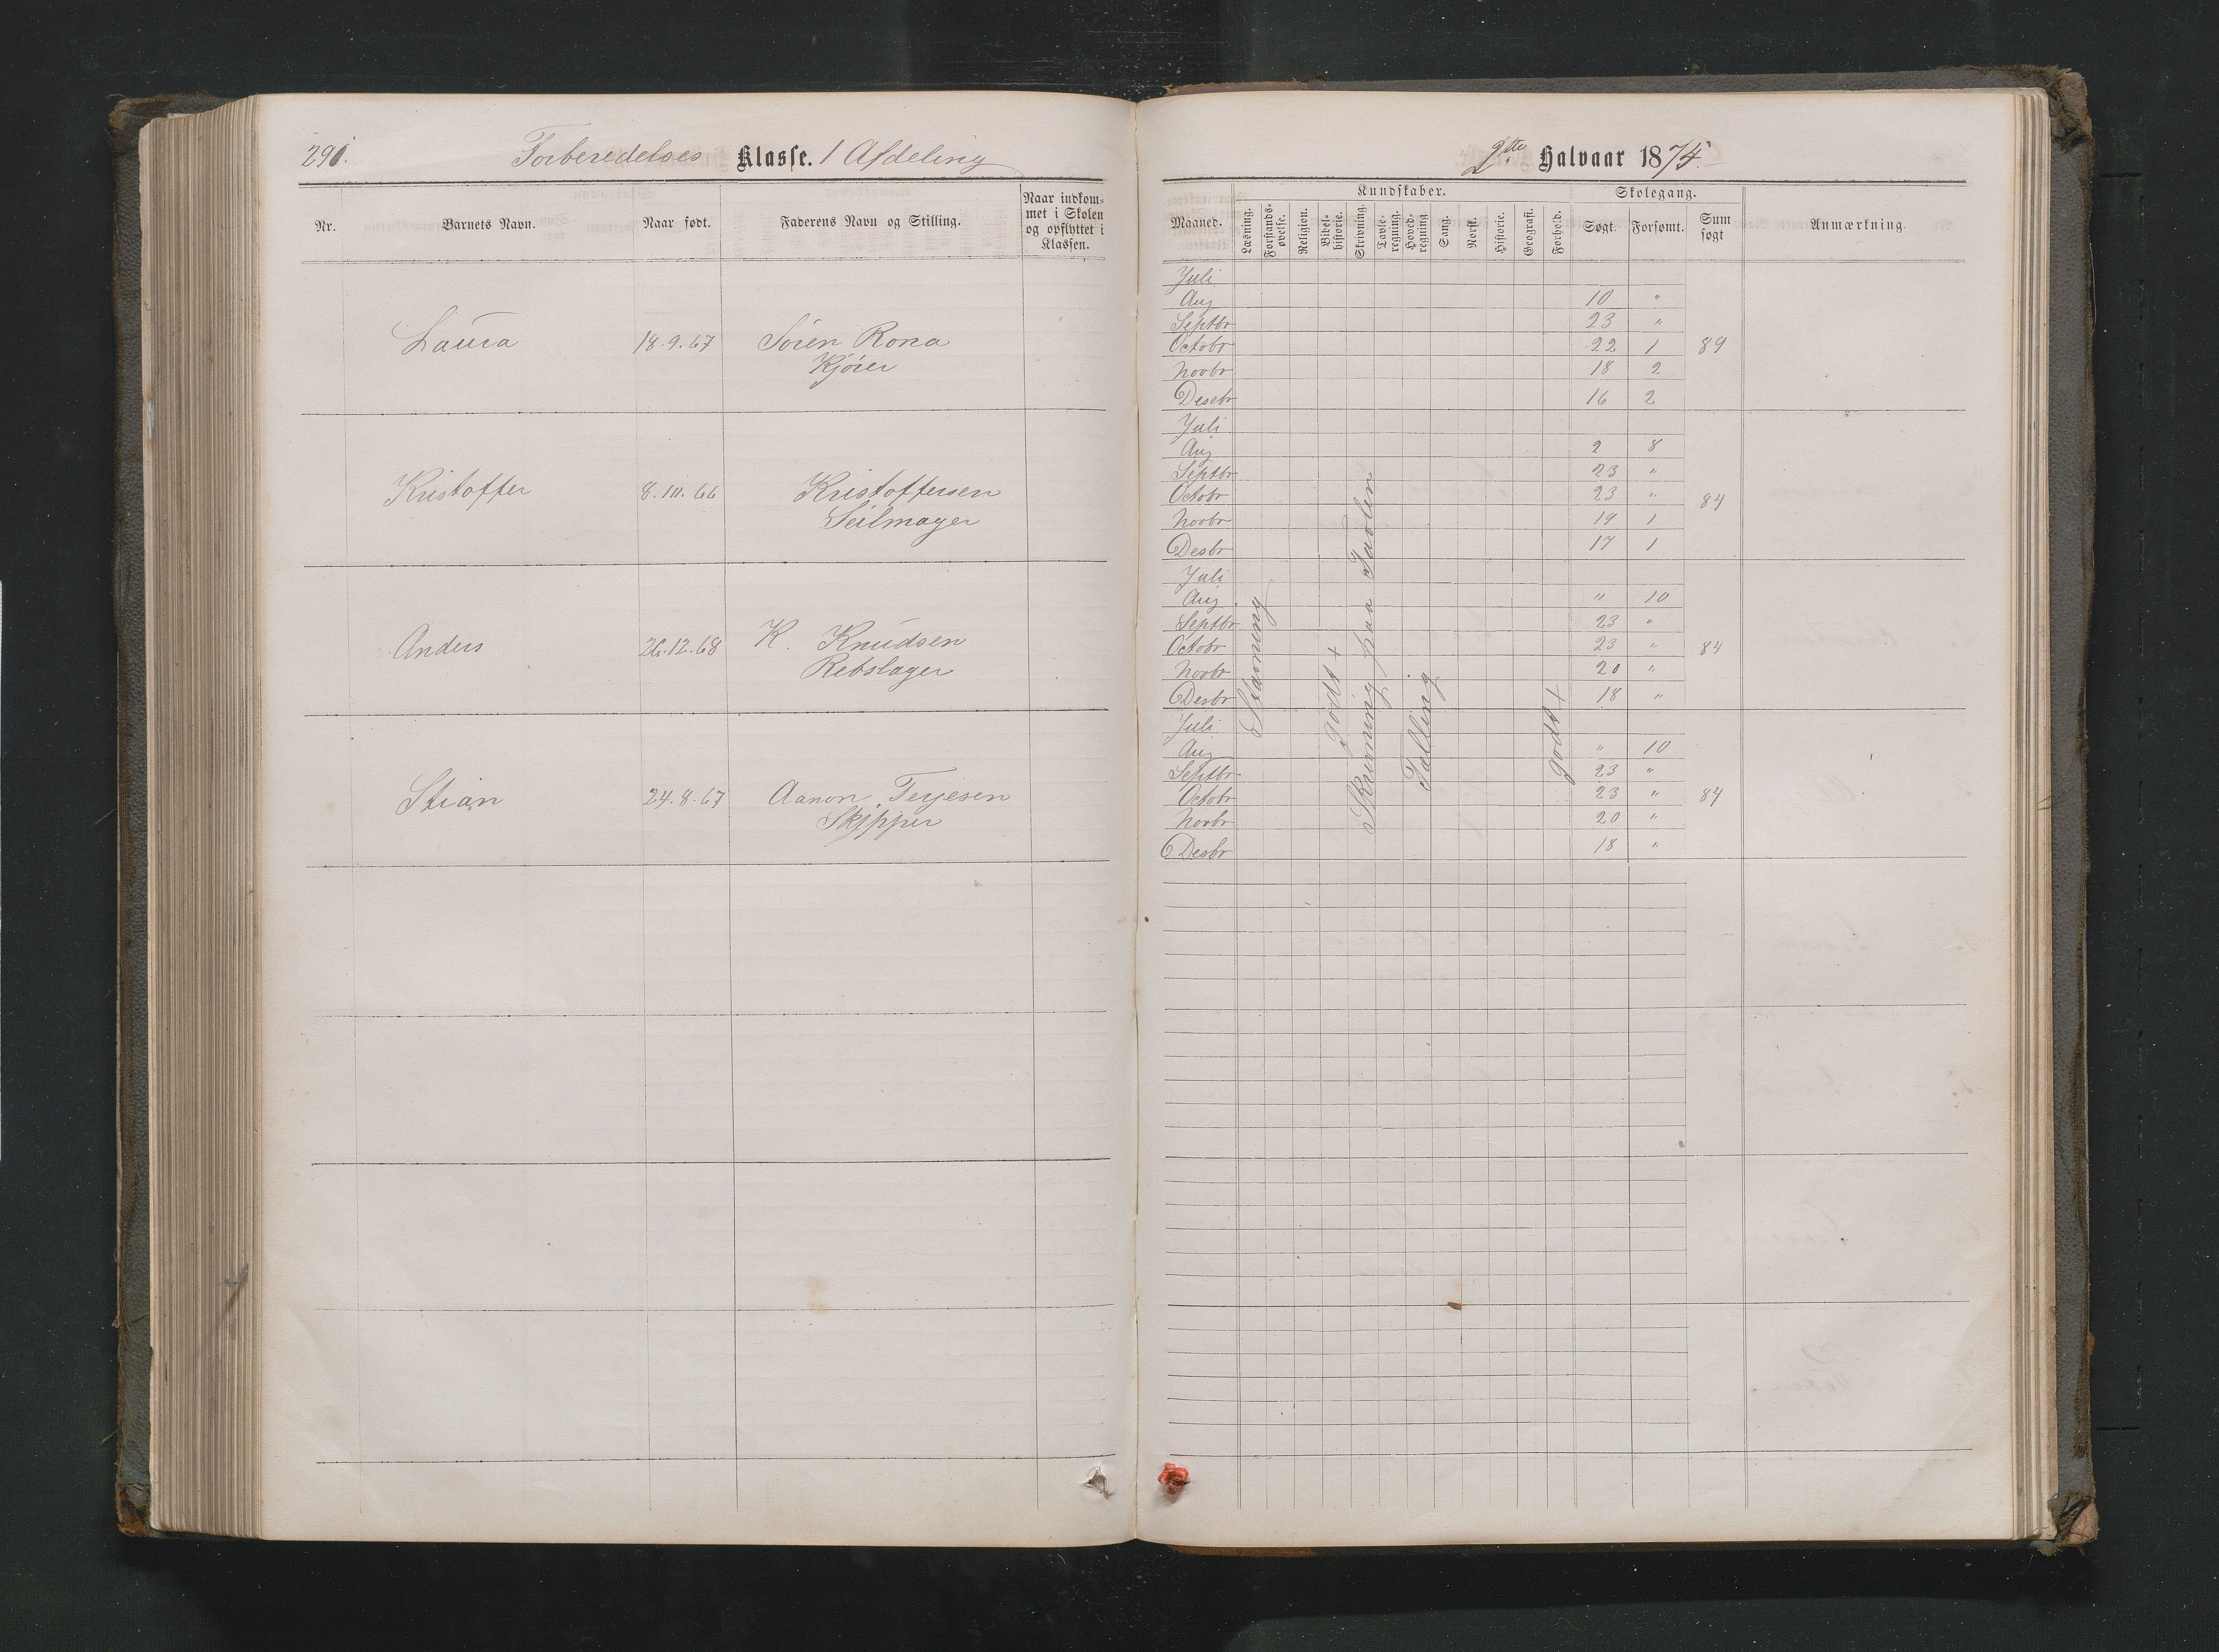 291.
Forberedelses Klasse. 1 Afdeling
Nr. Barnets Navn. Naar født. Faderens Navn og Stilling. Naar indkommet i Skolen og opflyttet i Klassen.
Laura 18.9.67 Sören Rona
Kjörer
Kristoffer 8.10.66 Kristoffersen
Seilmager
Anders 26.12.68 K. Knudsen
Rebslager
Stian 24.8.67 Aanon Terjesen
Skipper
2den Halvaar 1875.
Kundskaber. Skolegang.
Maaned. Læsning. Forstandsøvelse. Religion. Bibelhistorie. Skrivning. Tavleregning. Hovedregning. Sang. Norsk. Historie. Geografi. Forhold. Søgt. Forsømt. Sum søgt Anmærkning.
Juli
Aug 10 "
Septbr 23 "
Octobr 22 1 89
Novbr 18 2
Desebr 16 2
Juli
Aug 2 8
Septbr 23 "
Octobr 23 " 84
Novbr 19 1
Desbr 17 1
Juli
Aug " 10
Septbr 23 "
Octobr 23 " 84
Novbr 20 "
Desbr 18 "
Juli
Aug " 10
Septbr 23 "
Octobr 23 " 84
Novbr 20 "
Desbr 18 "
Stavning
godt +
Skrivning paa Tavlen
Tælling
godt +